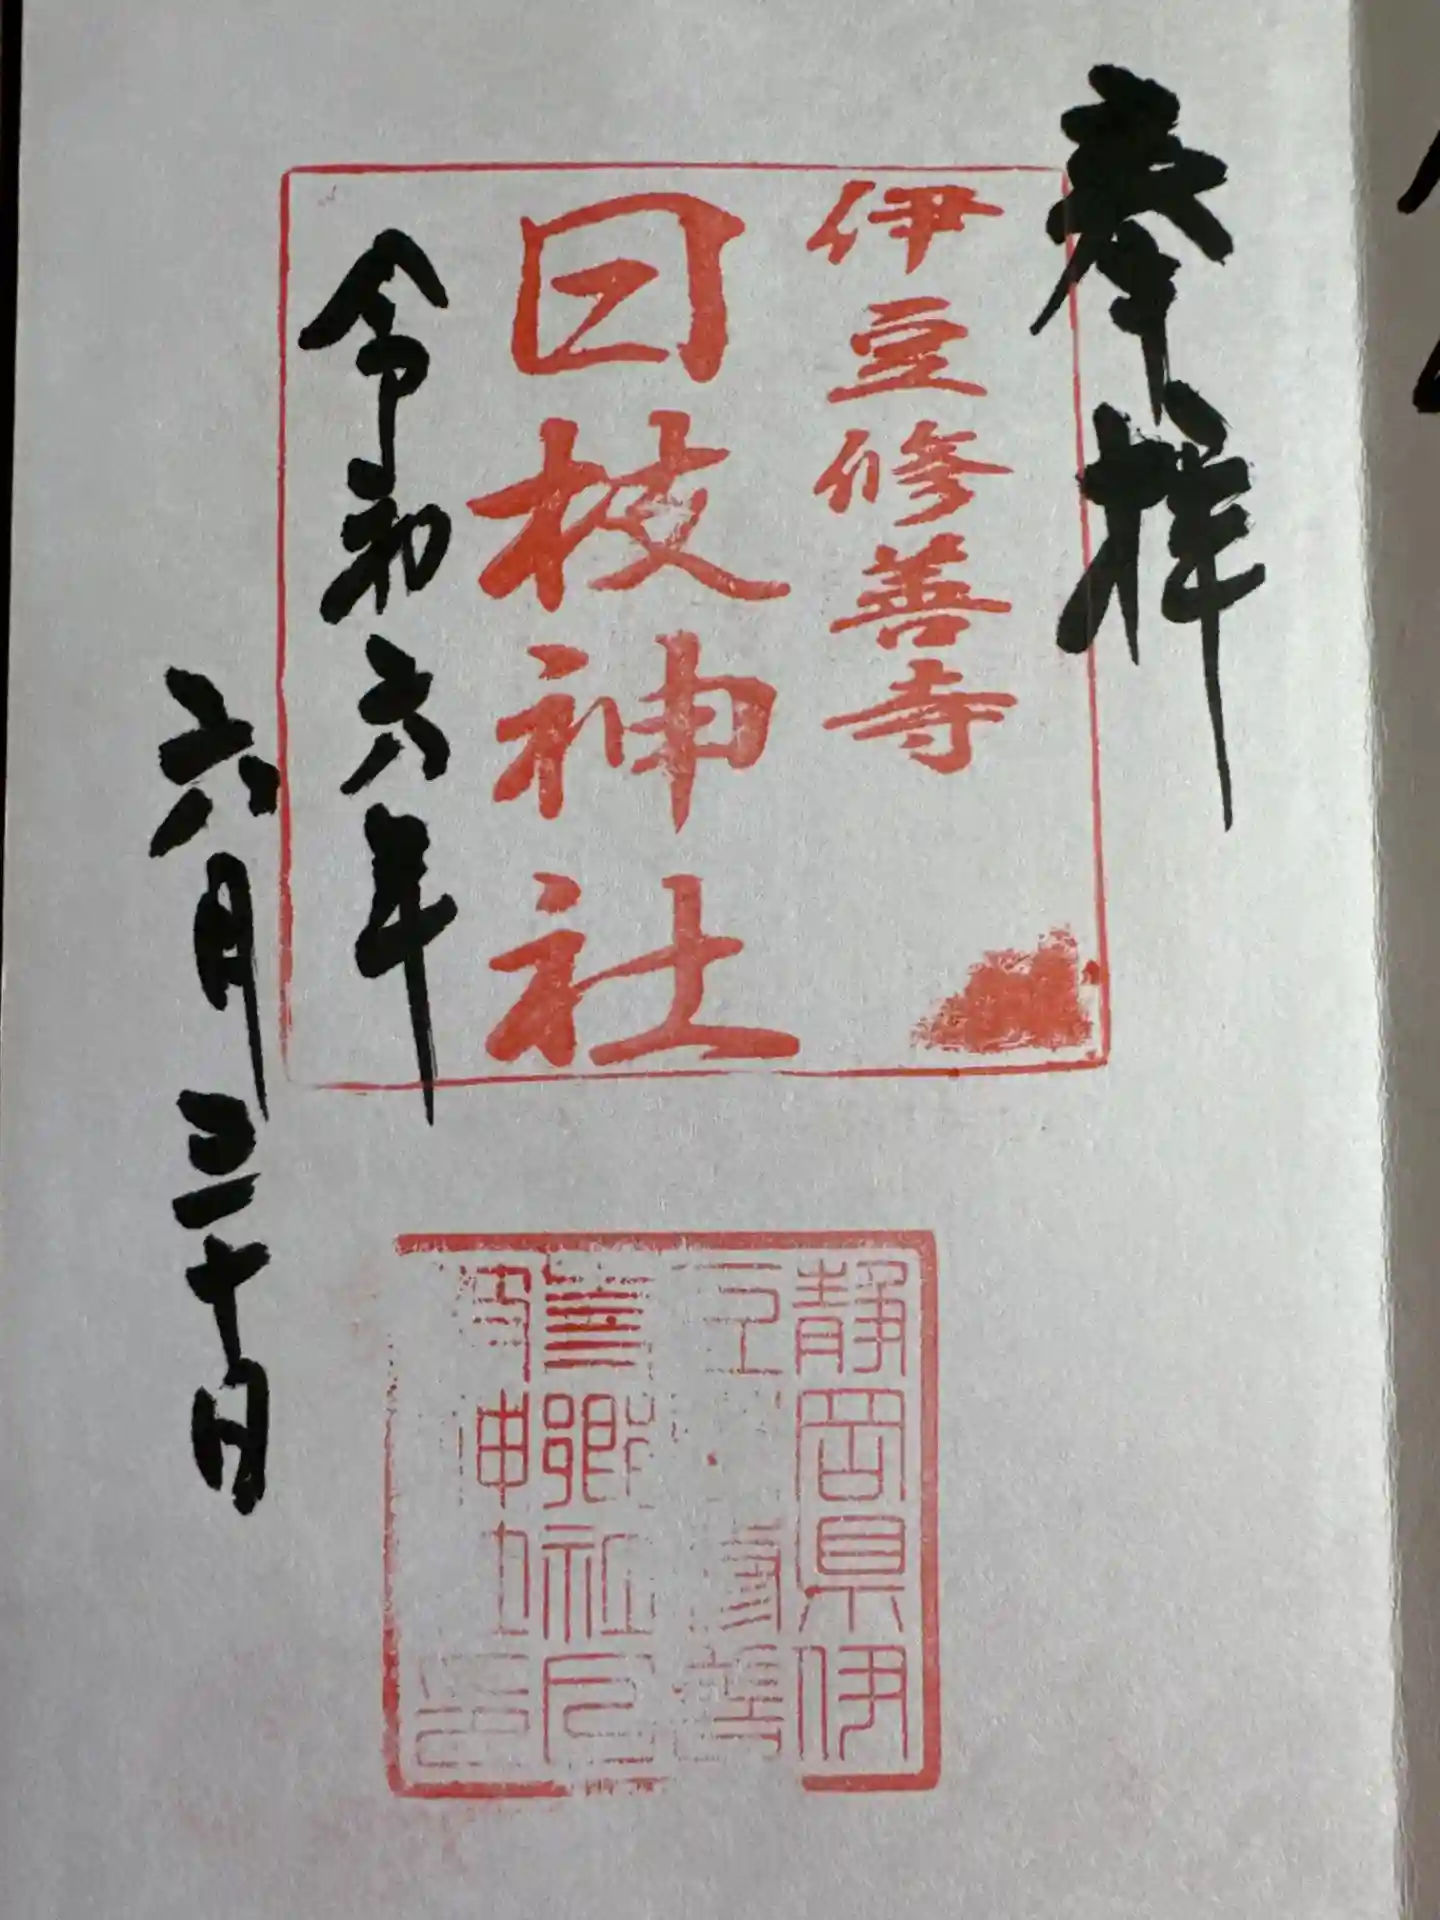 奉拝
伊豆修善寺
日枝神社
令和六年
六月三十日
静岡県伊
修善
郷社日
神社印